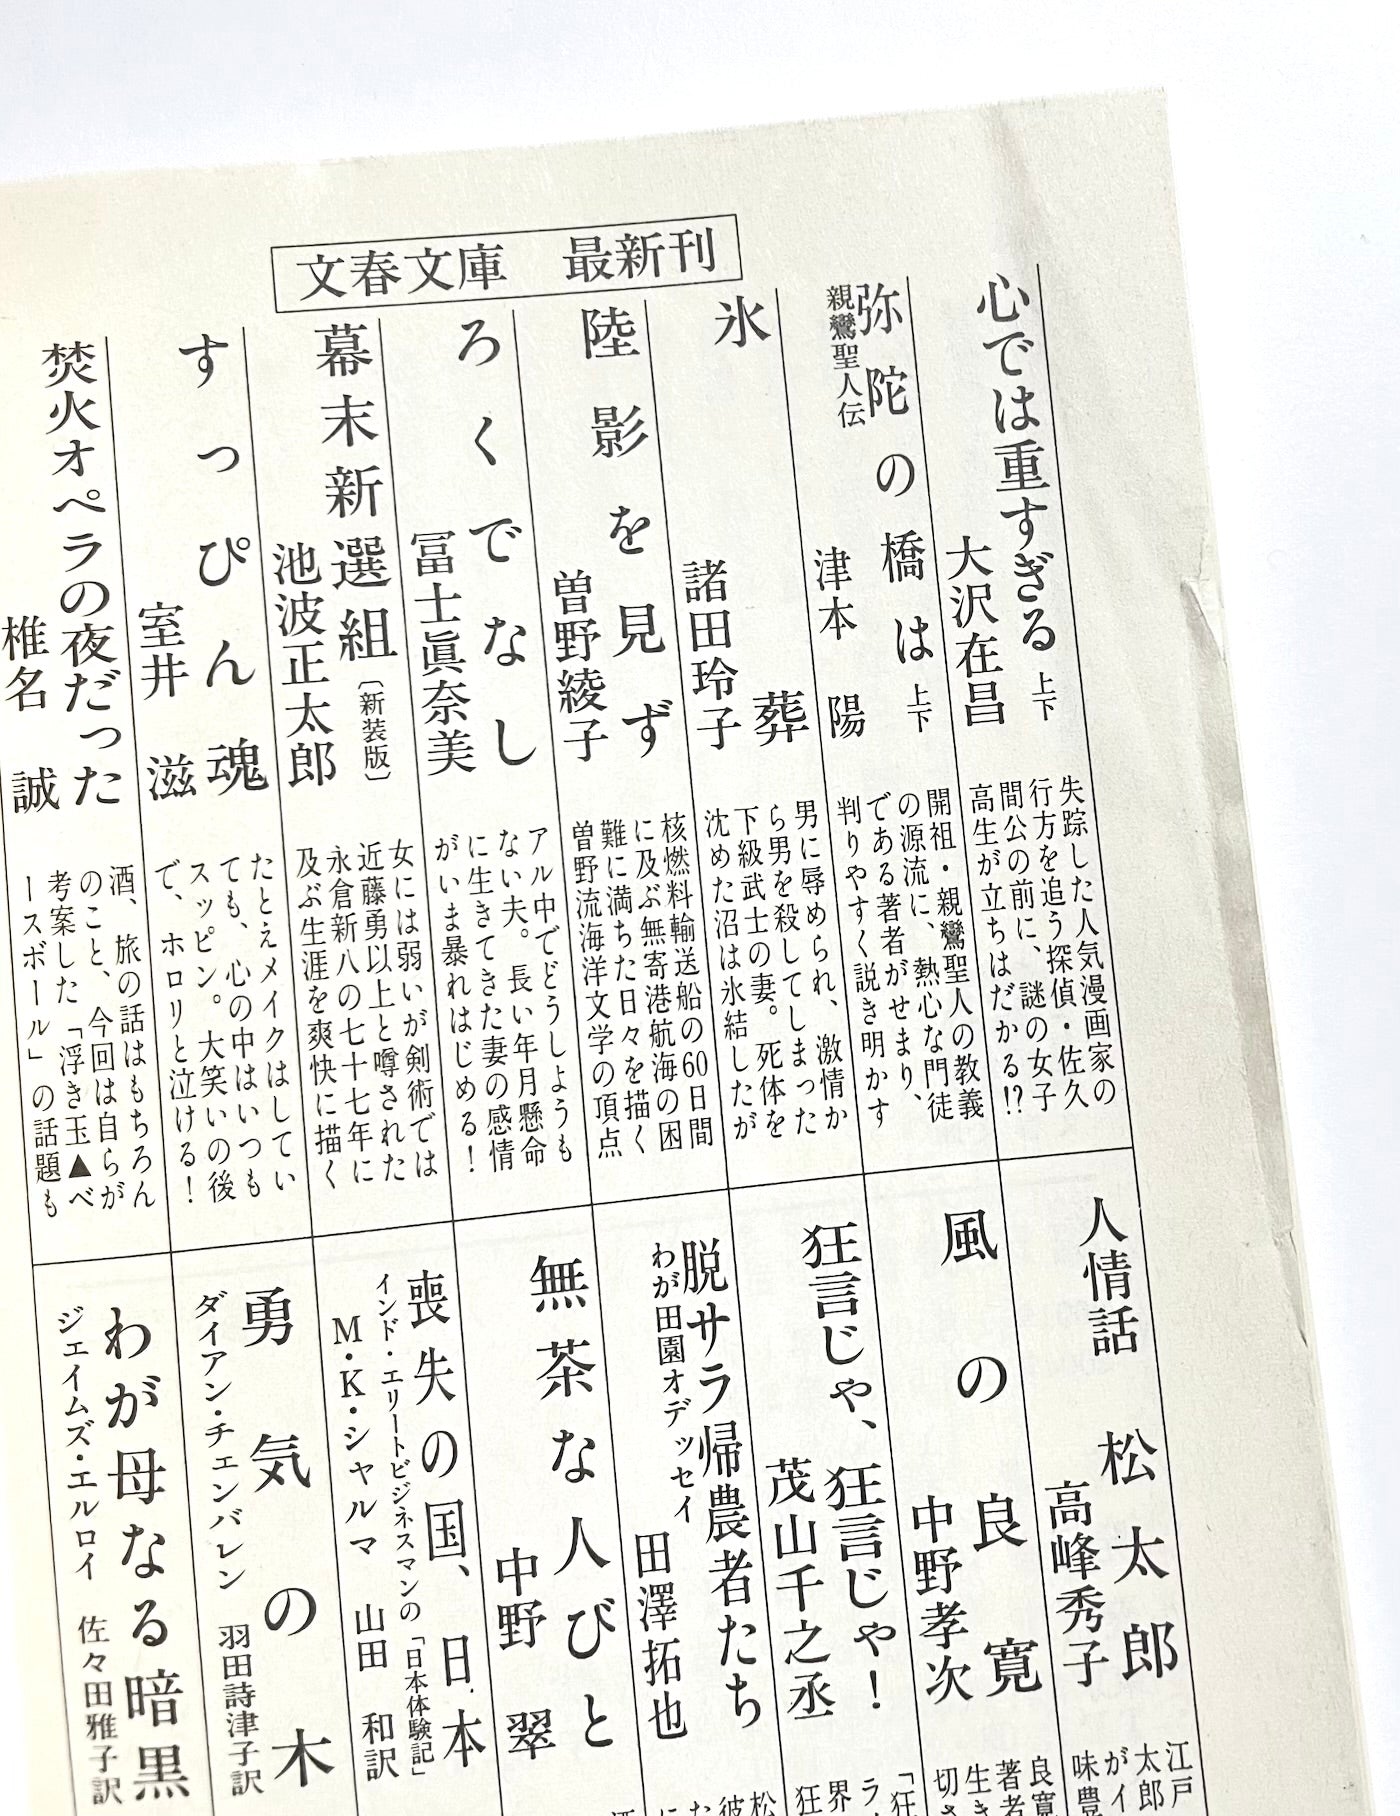 文春文庫　最新刊
心では重すぎる 上下
大沢在昌
失踪した人気漫画家の
行方を追う探偵・佐久
間公の前に、謎の女子
高生が立ちはだかる!?
弥陀の橋は 上下
親鸞聖人伝
津本　陽
開祖・親鸞聖人の教義
の源流に、熱心な門徒
である著者がせまり、
判りやすく説き明かす
氷葬
諸田玲子
男に辱められ、激情か
ら男を殺してしまった
下級武士の妻。死体を
沈めた沼は氷結したが
陸影を見ず
曽野綾子
核燃料輸送船の60日間
に及ぶ無寄港航海の困
難に満ちた日々を描く
曽野流海洋文学の頂点
ろくでなし
冨士眞奈美
アル中でどうしようも
ない夫。長い年月懸命
に生きてきた妻の感情
がいま暴れはじめる！
幕末新選組〔新装版〕
池波正太郎
女には弱いが剣術では
近藤勇以上と噂された
永倉新八の七十七年に
及ぶ生涯を爽快に描く
すっぴん魂
室井　滋
たとえメイクはしてい
ても、心の中はいつも
スッピン。大笑いの後
で、ホロリと泣ける！
焚火オペラの夜だった
椎名　誠
酒、旅の話はもちろん
のこと、今回は自らが
考案した「浮き玉▲ベ
ースボール」の話題も
人情話　松太郎
高峰秀子
江戸
太郎
がイ
味豊
風の良寛
中野孝次
良寛
著者
生き
切さ
狂言じゃ、狂言じゃ！
茂山千之丞
「狂
ラ
界
狂
脱サラ帰農者たち
わが田園オデッセイ
田澤拓也
松
彼
た
に
無茶な人びと
中野　翠
酒
喪失の国、日本
インド・エリートビジネスマンの「日本体験記」
M・K・シャルマ　山田　和訳
勇気の木
ダイアン・チェンバレン　羽田詩津子訳
わが母なる暗黒
ジェイムズ・エルロイ　佐々田雅子訳